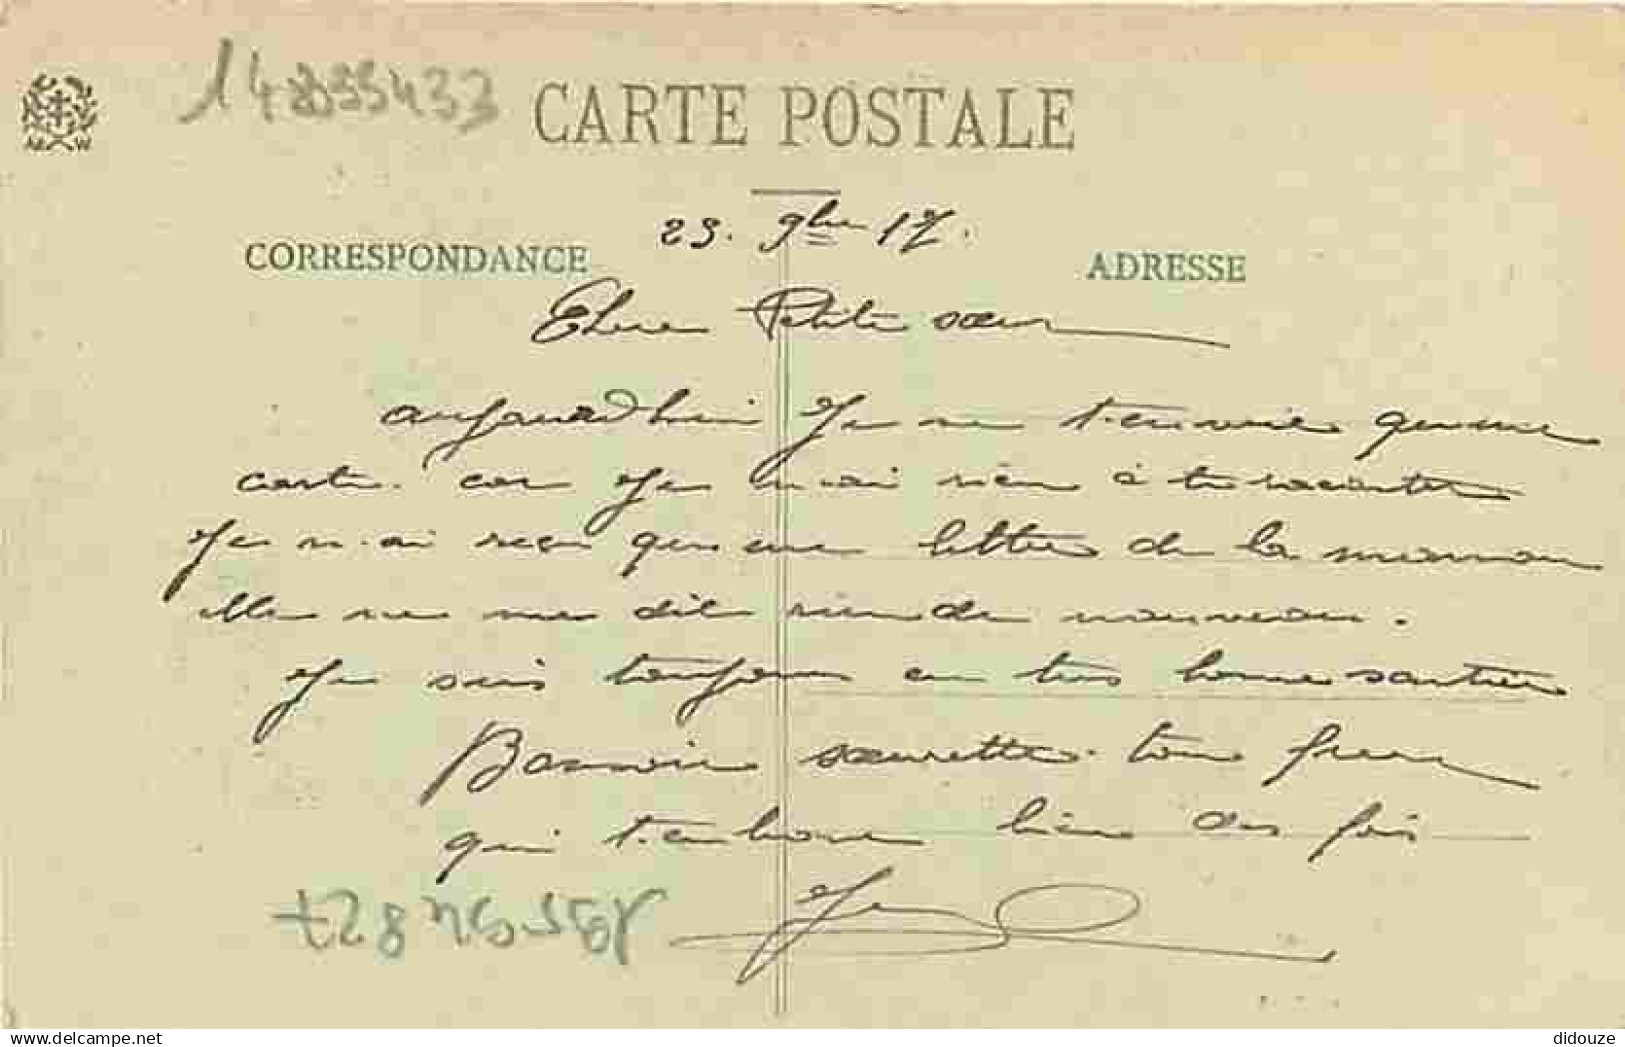 148355433
CARTE POSTALE
23. 9bre 17.
CORRESPONDANCE
ADRESSE
Chère Petite sœur
aujourd'hui je ne t'envoie qu'une
carte. car je n'ai rien à te raconter
Je n'ai reçu qu'une lettre de la maison
elle ne me dit rien de nouveau.
Je suis toujours en très bonne santée
Bonsoir sœurette ton frère
qui t'embrasse bien des fois
didouze
delcampe.net